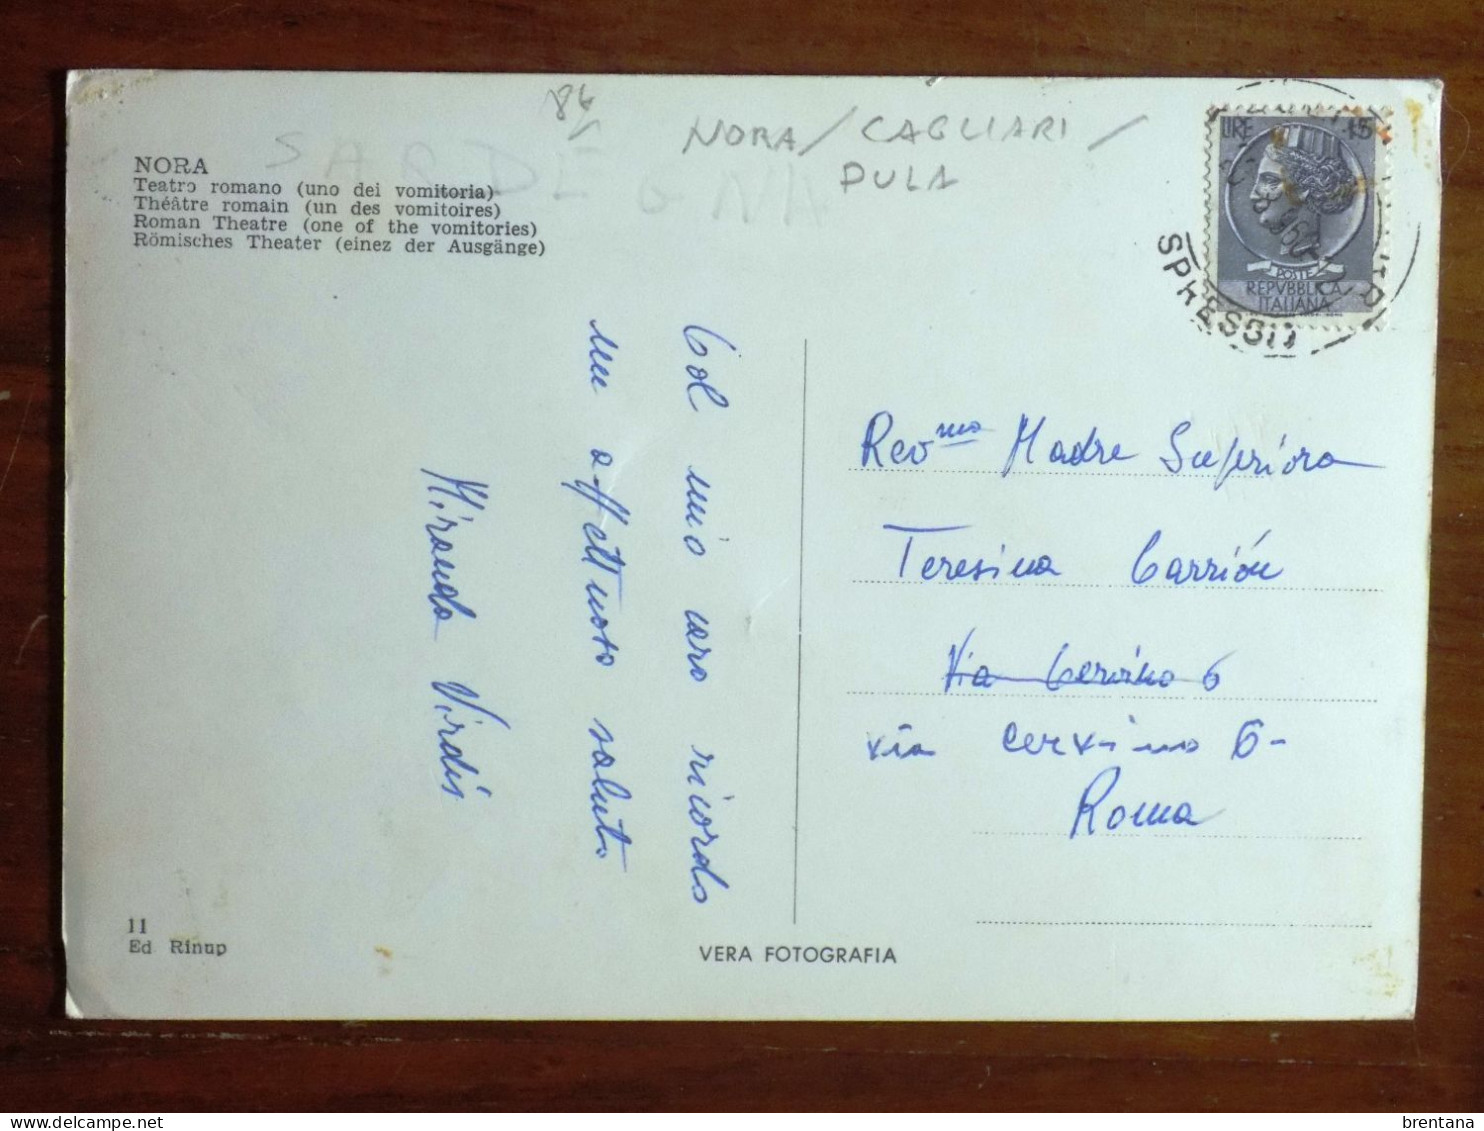 84
SARDEGNA
NORA/CAGLIARI/
PULA
NORA
Teatro romano (uno dei vomitoria)
Théâtre romain (un des vomitoires)
Roman Theatre (one of the vomitories)
Römisches Theater (einez der Ausgänge)
LIRE 15
POSTE
REPVBBLICA
ITALIANA
SPRESSI
Col mio caro ricordo
un affettuoso saluto
Miranda Virdis
Rev.ma Madre Superiora
Teresina Carrión
Via Cervino 6
via Cervino 6-
Roma
11
Ed Rinup
VERA FOTOGRAFIA
brentana